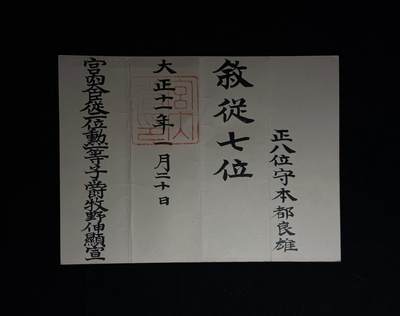 正八位守本都良雄
敘從七位
大正十一年一月二十日
宮內大臣從二位勳一等子爵牧野伸顯宣